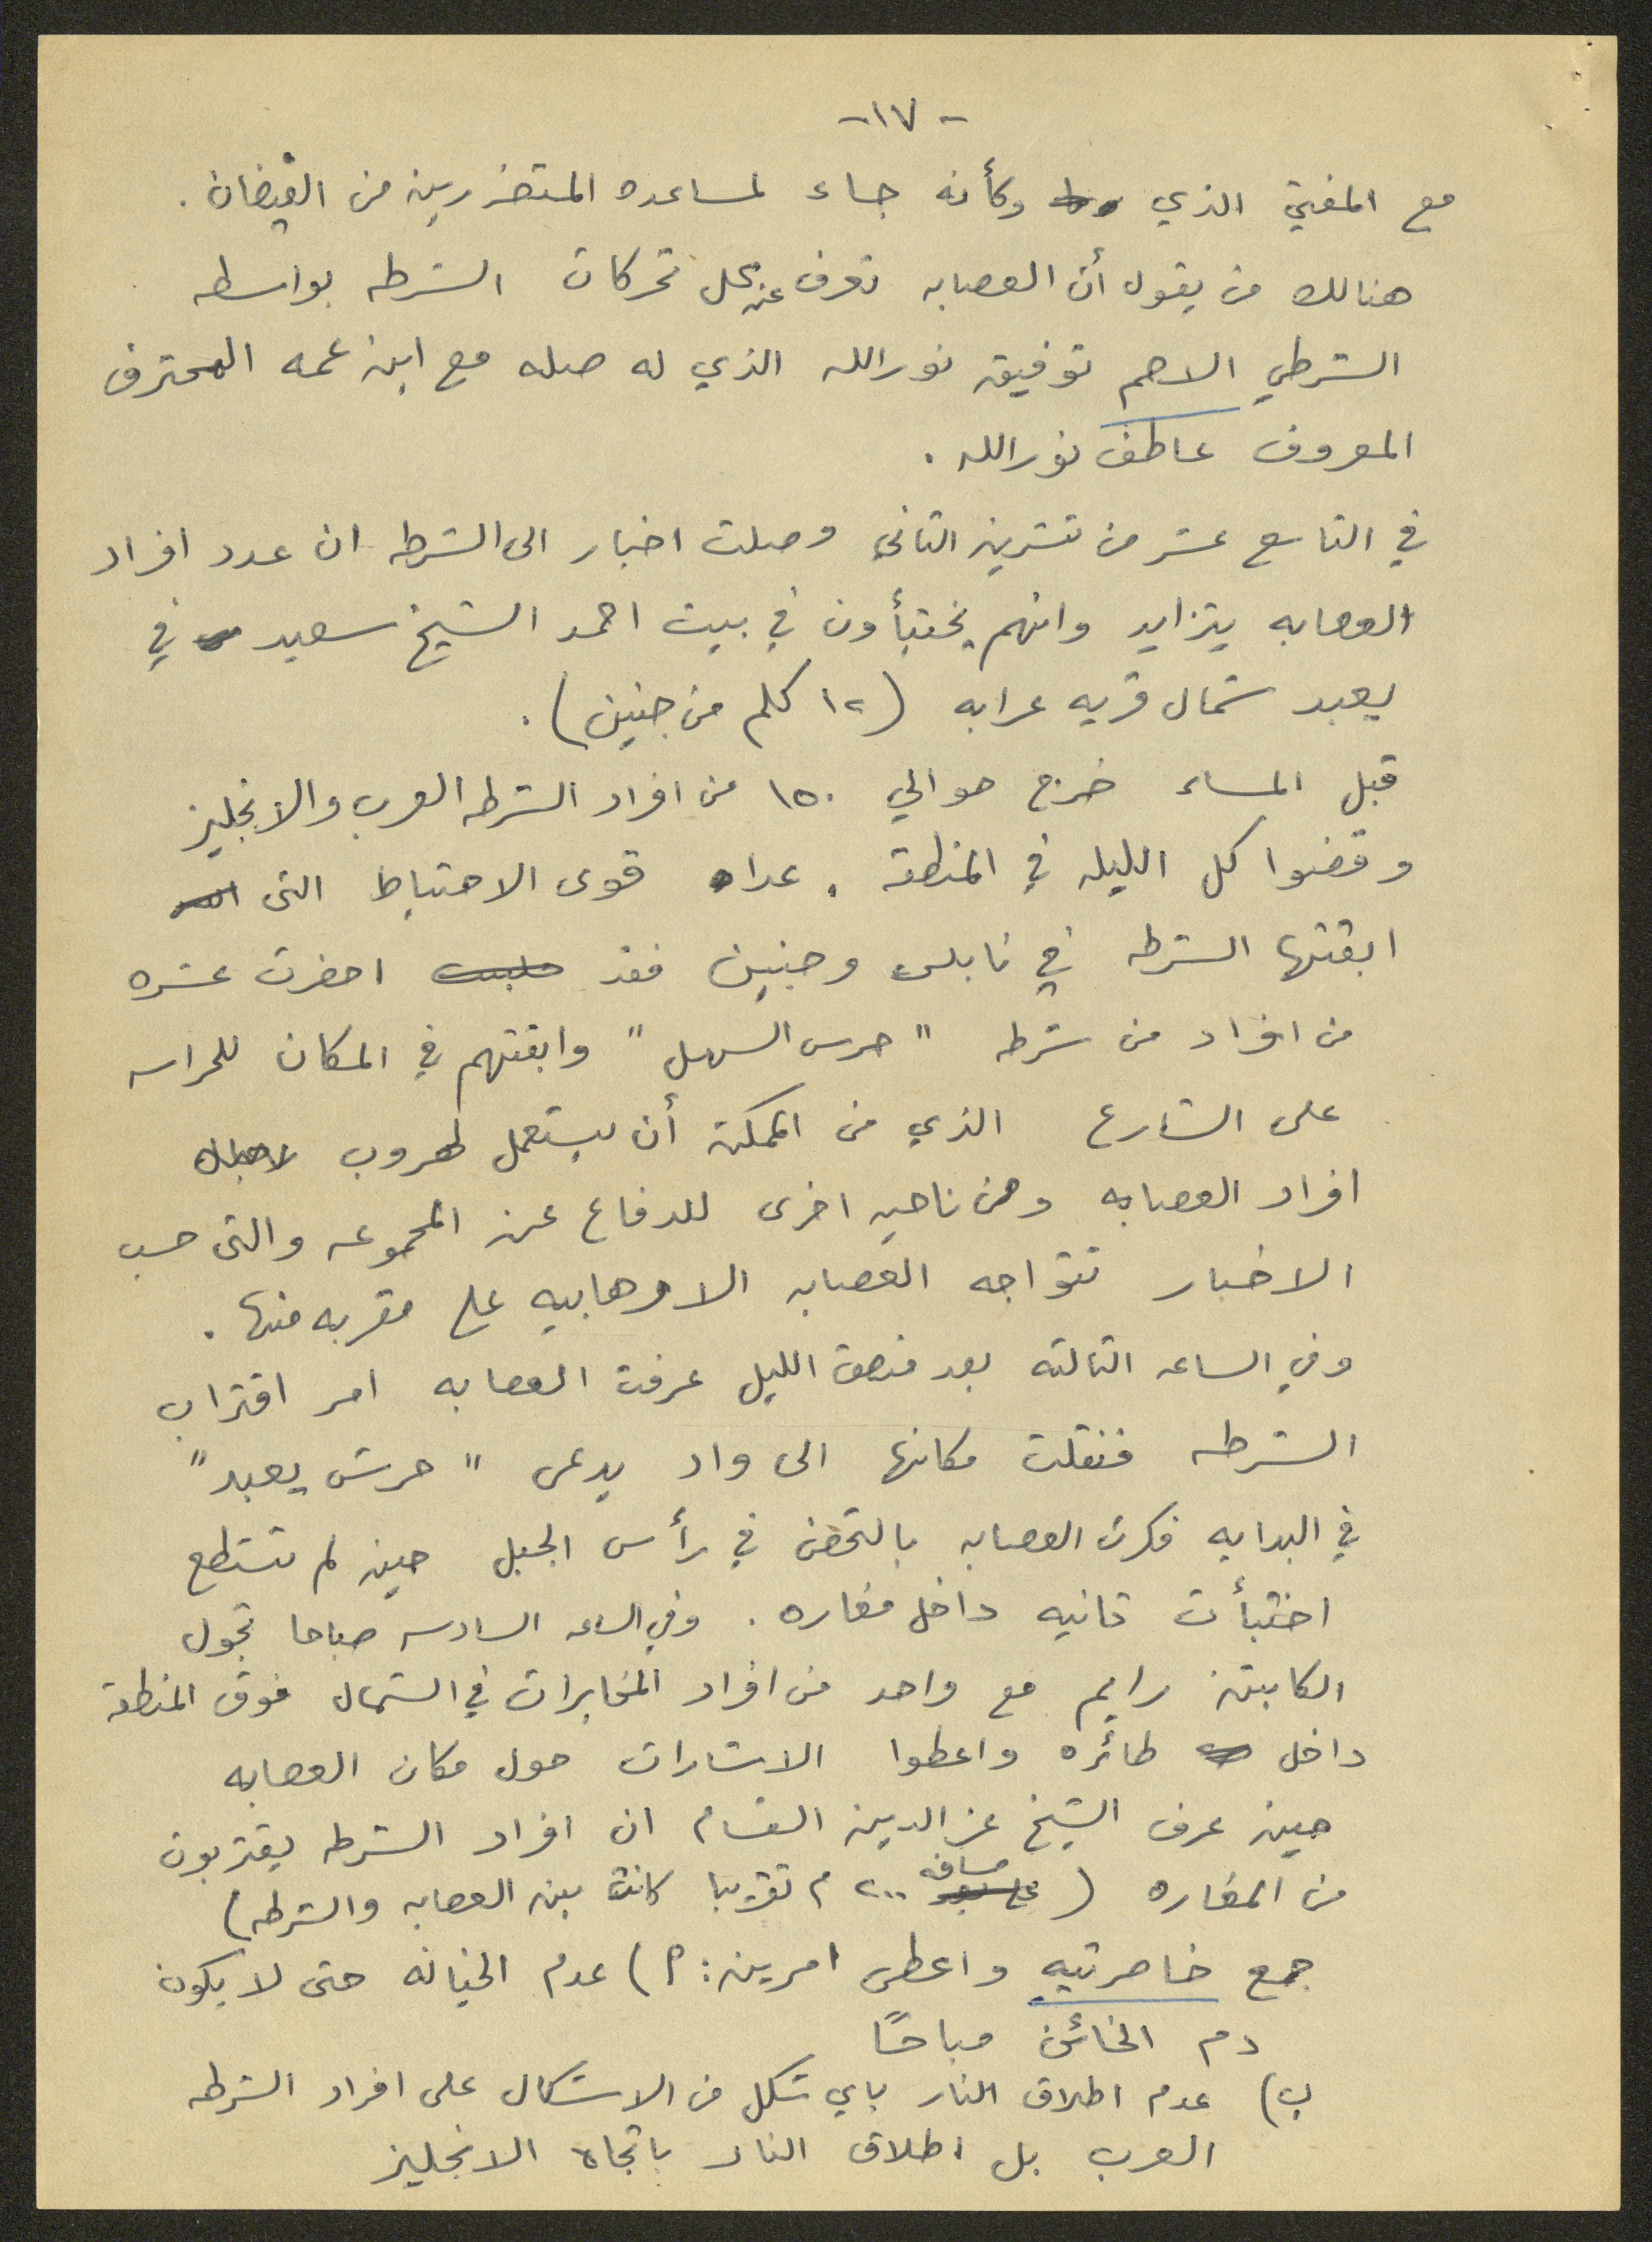 -١٧-
مع المفتي الذي وكأنه جاء لمساعده المتضررين من الفيضان.
هنالك من يقول أن العصابه تعرف عن كل تحركات الشرطه بواسطه
الشرطي الاهم توفيق نورالله الذي له صله مع ابن عمه المحترف
المعروف عاطف نورالله.
في التاسع عشر من تشرين الثاني وصلت اخبار الى الشرطه ان عدد افراد
العصابه يتزايد وانهم يختبأون في بيت احمد الشيخ سعيد في
يعبد شمال قريه عرابه (١٢ كلم من جنين).
قبل المساء خرج حوالي ١٥٠ من افراد الشرطه العرب والانجليز
وقضوا كل الليله في المنطقة. عدا قوى الاحتياط التي
ابقتها الشرطه في نابلس وجنين فقد احضرت عشره
من افراد من شرطه "حرس السهل" وابقتهم في المكان للحراسه
على الشارع الذي من الممكن أن يستعمل لهروب
افراد العصابه ومن ناحيه اخرى للدفاع عن المجموعه والتي حسب
الاخبار تتواجه العصابه الارهابيه على مقربه منها.
وفي الساعه الثالثه بعد منصف الليل عرفت العصابه امر اقتراب
الشرطه فنقلت مكانها الى واد يدعى "حرش يعبد"
في البدايه فكرت العصابه بالتحصن في رأس الجبل حين لم تستطع
اختبأت ثانيه داخل مغاره. وفي الساعه السادسه صباحا تجول
الكابتن رايم مع واحد من افراد المخابرات في الشمال فوق المنطقة
داخل طائره واعطوا الاشارات حول مكان العصابه
حين عرف الشيخ عزالدين القسام ان افراد الشرطه يقتربون
من المغاره (مسافه ٢٠٠ م تقريبا كانت بين العصابه والشرطه)
جمع خاصرتيه واعطى امرين: ٩) عدم الخيانه حتى لا يكون
دم الخائن مباحًا
ب) عدم اطلاق النار باي شكل من الاشكال على افراد الشرطه
العرب بل اطلاق النار باتجاه الانجليز